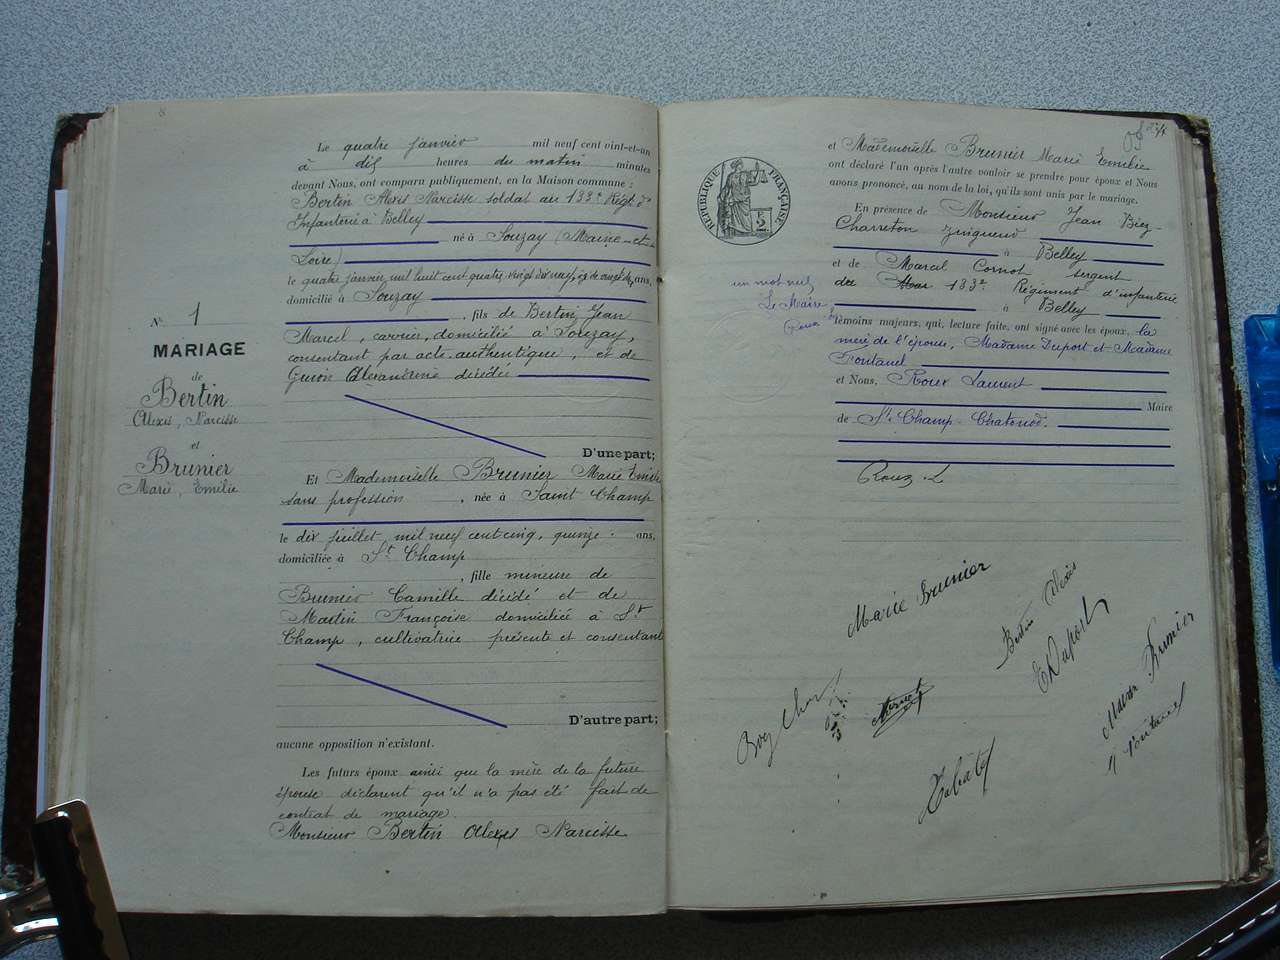 N° 1
MARIAGE
de
Bertin
Alexis, Narcisse
et
Brunier
Marie, Emilie
Le quatre janvier mil neuf cent vint-et-un
à dix heures du matin minutes
devant Nous, ont comparu publiquement, en la Maison commune :
Bertin Alexis Narcisse soldat au 133e Régt d'
Infanterie à Belley
né à Souzay (Maine-et-
Loire)
le quatre janvier mil huit cent quatre vingt dix neuf, ans,
domicilié à Souzay
, fils de Bertin Jean
Marcel, carrier, domicilié à Souzay,
consentant par acte authentique, et de
Guion Alexandrine décédée
D'une part;
Et Mademoiselle Brunier Marie Emilie
sans profession , née à Saint Champ
le dix juillet mil neuf cent cinq, quinze ans,
domiciliée à St Champ
, fille mineure de
Brunier Camille décédé et de
Martin Françoise domiciliée à St
Champ, cultivatrice présente et consentante
D'autre part;
aucune opposition n'existant.
Les futurs époux ainsi que la mère de la future
épouse déclarent qu'il n'a pas été fait de
contrat de mariage
Monsieur Bertin Alexis Narcisse
et Mademoiselle Brunier Marie Emilie
ont déclaré l'un après l'autre vouloir se prendre pour époux et Nous
avons prononcé, au nom de la loi, qu'ils sont unis par le mariage.
En présence de Monsieur Jean
Charreton zingueur
à Belley
et de Marcel Cornot sergent
du 133e Régiment d'infanterie
à Belley
témoins majeurs, qui, lecture faite, ont signé avec les époux, la
mère de l'épouse, Madame Duport et Madame
Fontanel
et Nous, Roux Laurent
Maire
de St Champ-Chatonod.
Roux L
RÉPUBLIQUE FRANÇAISE
2
un mot nul
Le Maire
Roux
Marie Brunier
Bertin Alexis
Duport
Brunier
Fontanel